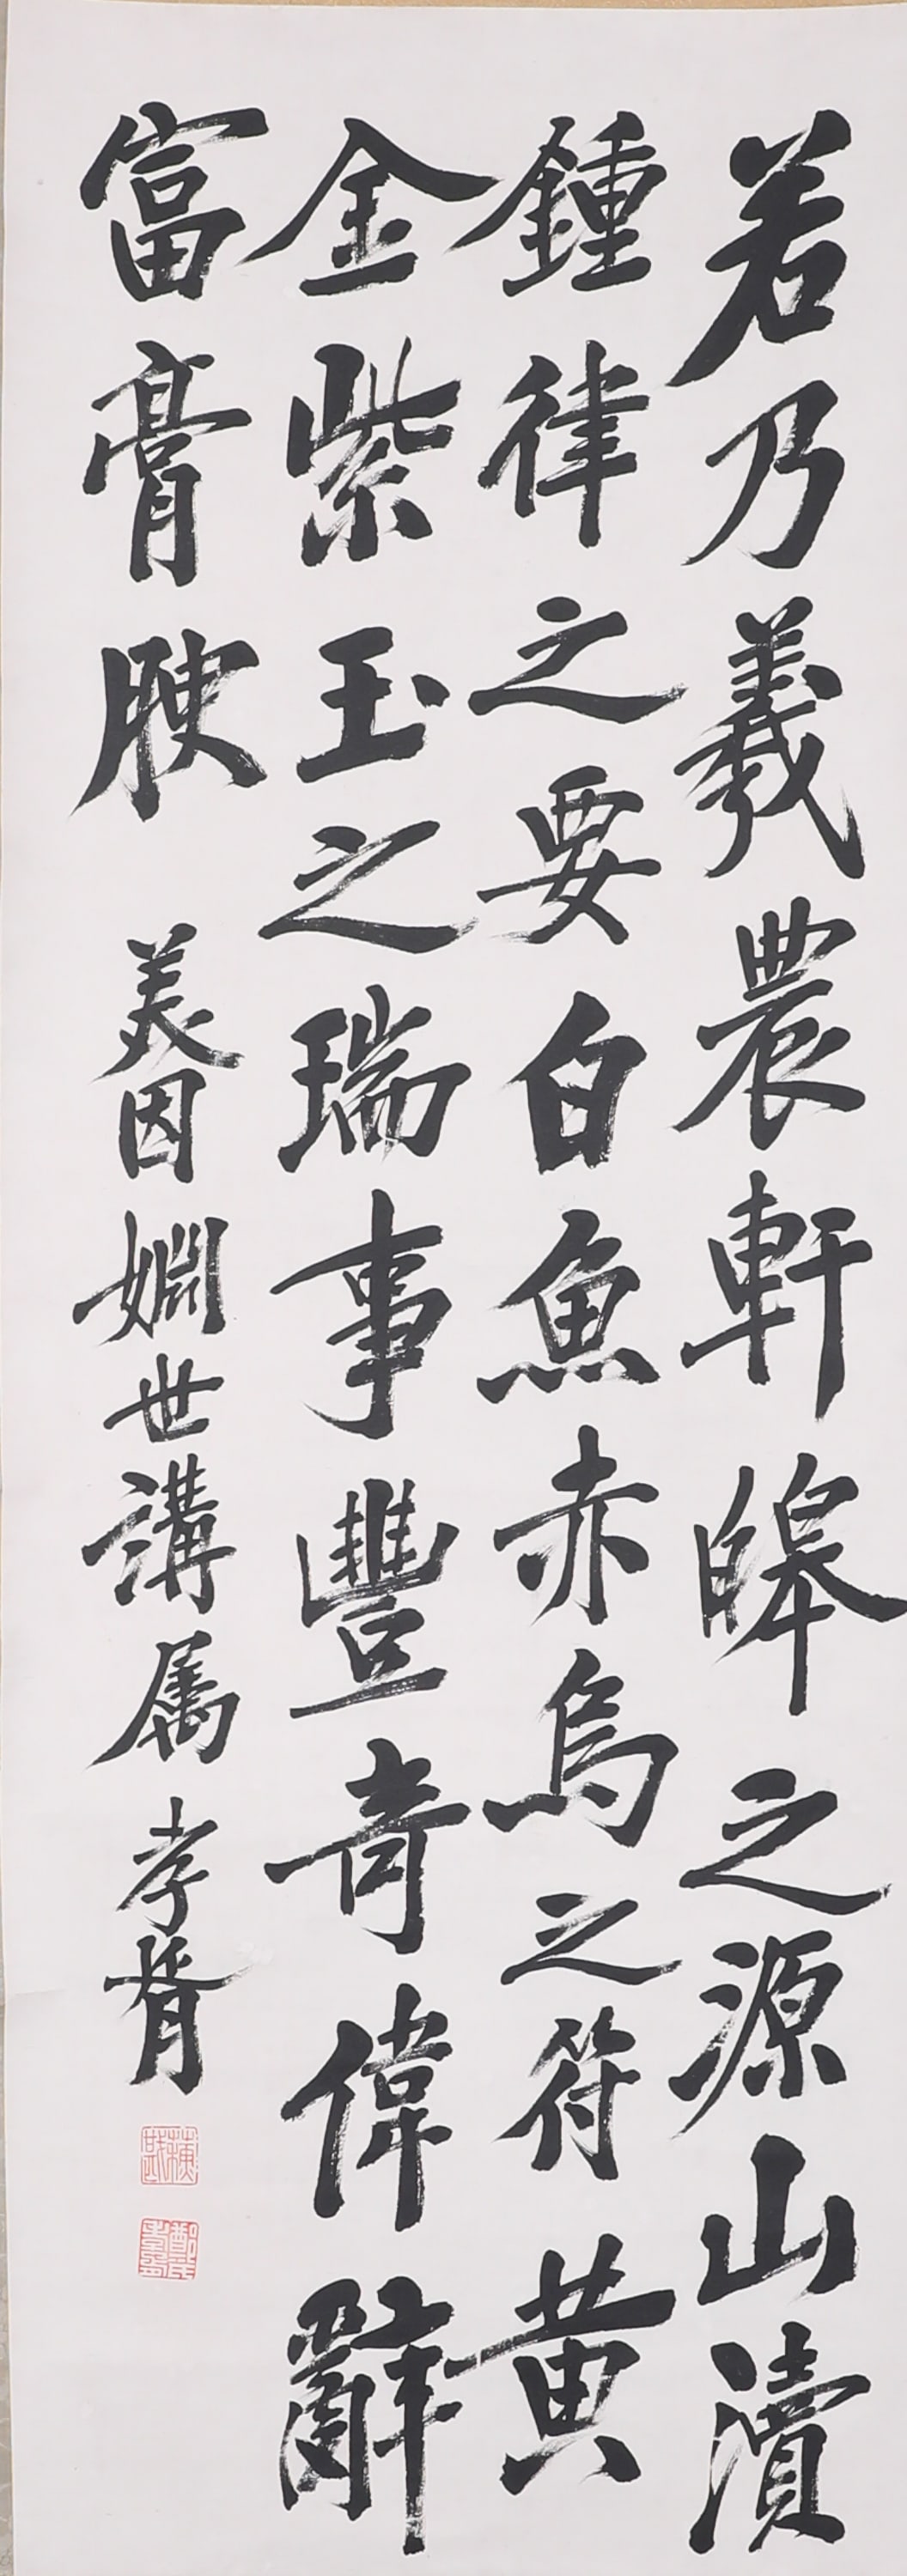 若乃羲農軒皞之源山瀆
鍾律之要白魚赤烏之符黄
金紫玉之瑞事豐奇偉辭
富膏腴
美因姻世講屬 孝胥